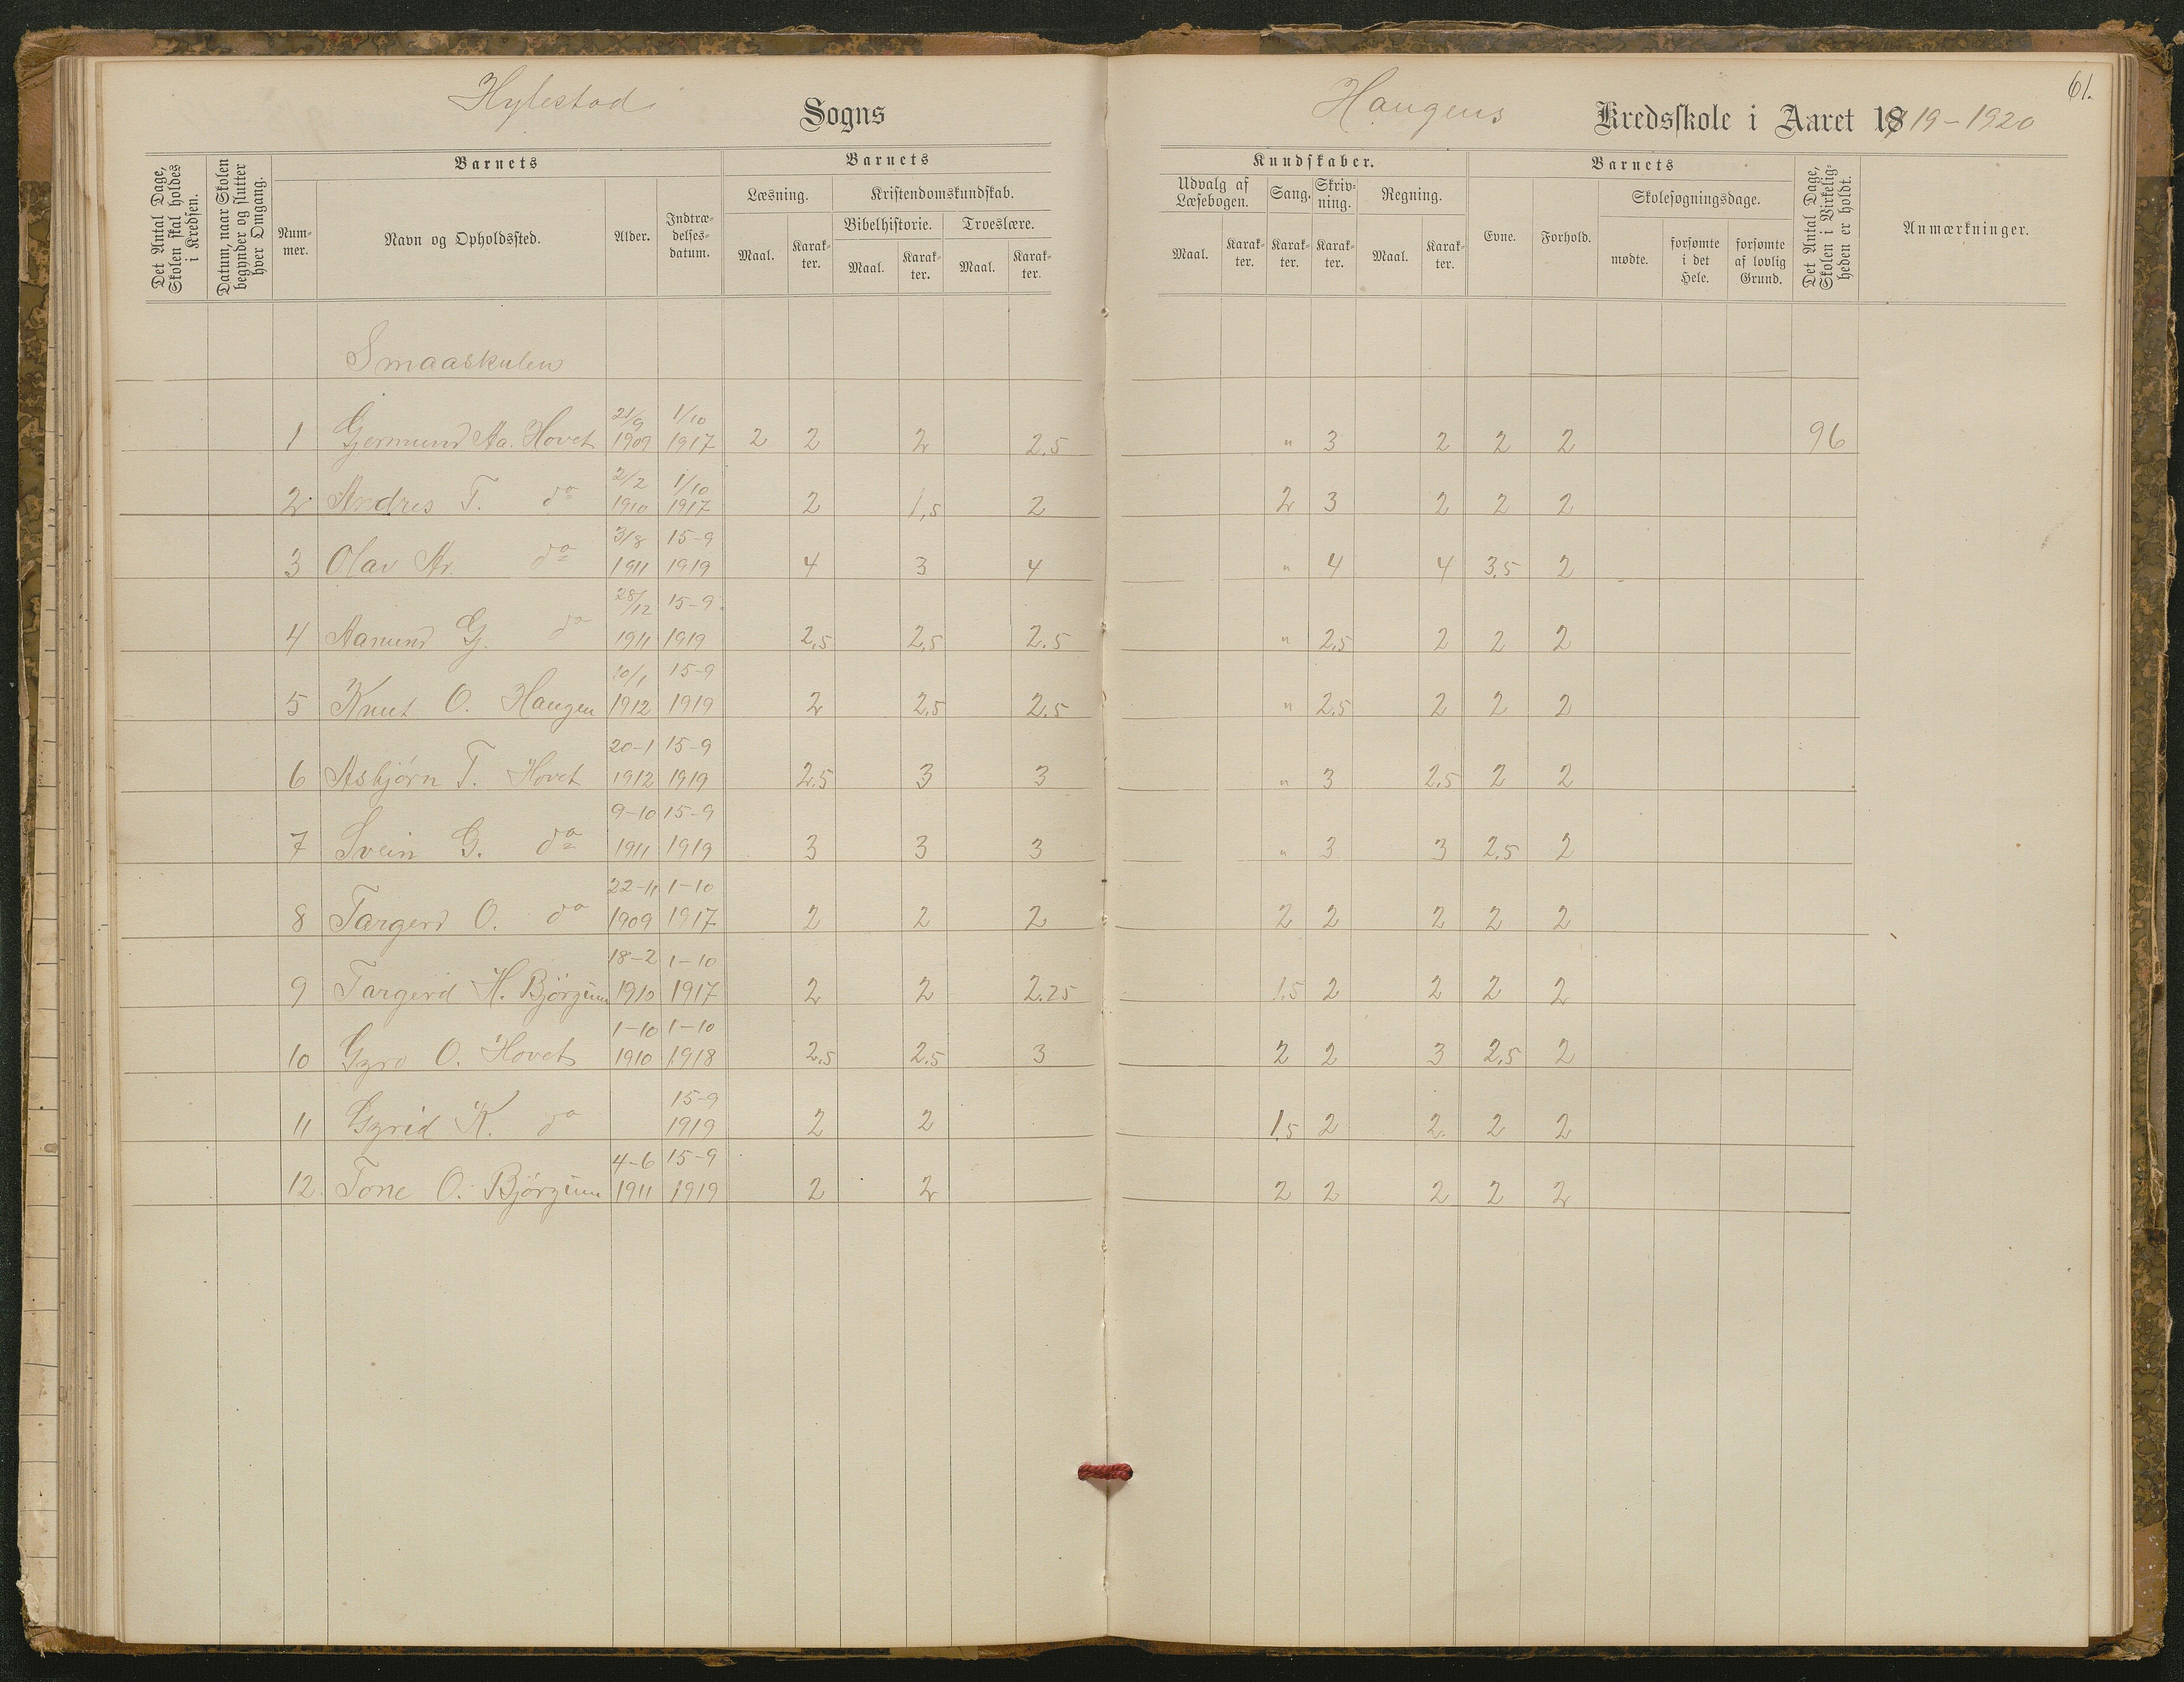 Hylestad Sogns
Haugens Kredsskole i Aaret 1919-1920
61.
Det Antal Dage, Skolen skal holdes i Kredsen.
Datum, naar Skolen begynder og slutter hver Omgang.
Barnets
Nummer.
Navn og Opholdssted.
Alder.
Indtrædelsesdatum.
Barnets
Læsning.
Maal. Karakter.
Kristendomskundskab.
Bibelhistorie. Troeslære.
Maal. Karakter. Maal. Karakter.
Kundskaber.
Udvalg af Læsebogen. Sang. Skrivning. Regning.
Maal. Karakter. Karakter. Karakter. Maal. Karakter.
Barnets
Evne. Forhold.
Skolesøgningsdage.
mødte. forsømte i det Hele. forsømte af lovlig Grund.
Det Antal Dage, Skolen i Virkeligheden er holdt.
Anmærkninger.
Smaaskulen
1 Gjermund Aa. Hovet 21/9 1909 1/10 1917 2 2 2 2.5 " 3 2 2 2 96
2 Andres T. do 2/2 1910 1/10 1917 2 1,5 2 2 3 2 2 2
3 Olav Ar. do 3/8 1911 15-9 1919 4 3 4 " 4 4 3,5 2
4 Aanund G. do 28/12 1911 15-9 1919 2,5 2,5 2.5 " 2,5 2 2 2
5 Knut O. Haugen 10/1 1912 15-9 1919 2 2,5 2.5 " 2,5 2 2 2
6 Asbjørn T. Hovet 20-1 1912 15-9 1919 2.5 3 3 " 3 2,5 2 2
7 Svein G. do 9-10 1911 15-9 1919 3 3 3 " 3 3 2,5 2
8 Targerd O. do 22-11 1909 1-10 1917 2 2 2 2 2 2 2 2
9 Targerd H. Bjørgum 18-2 1910 1-10 1917 2 2 2.25 1.5 2 2 2 2
10 Gyro O. Hovet 1-10 1910 1-10 1918 2,5 2.5 3 2 2 3 2,5 2
11 Gyrid K. do 15-9 1919 2 2 1,5 2 2 2 2
12 Tone O. Bjørgum 4-6 1911 15-9 1919 2 2 2 2 2 2 2